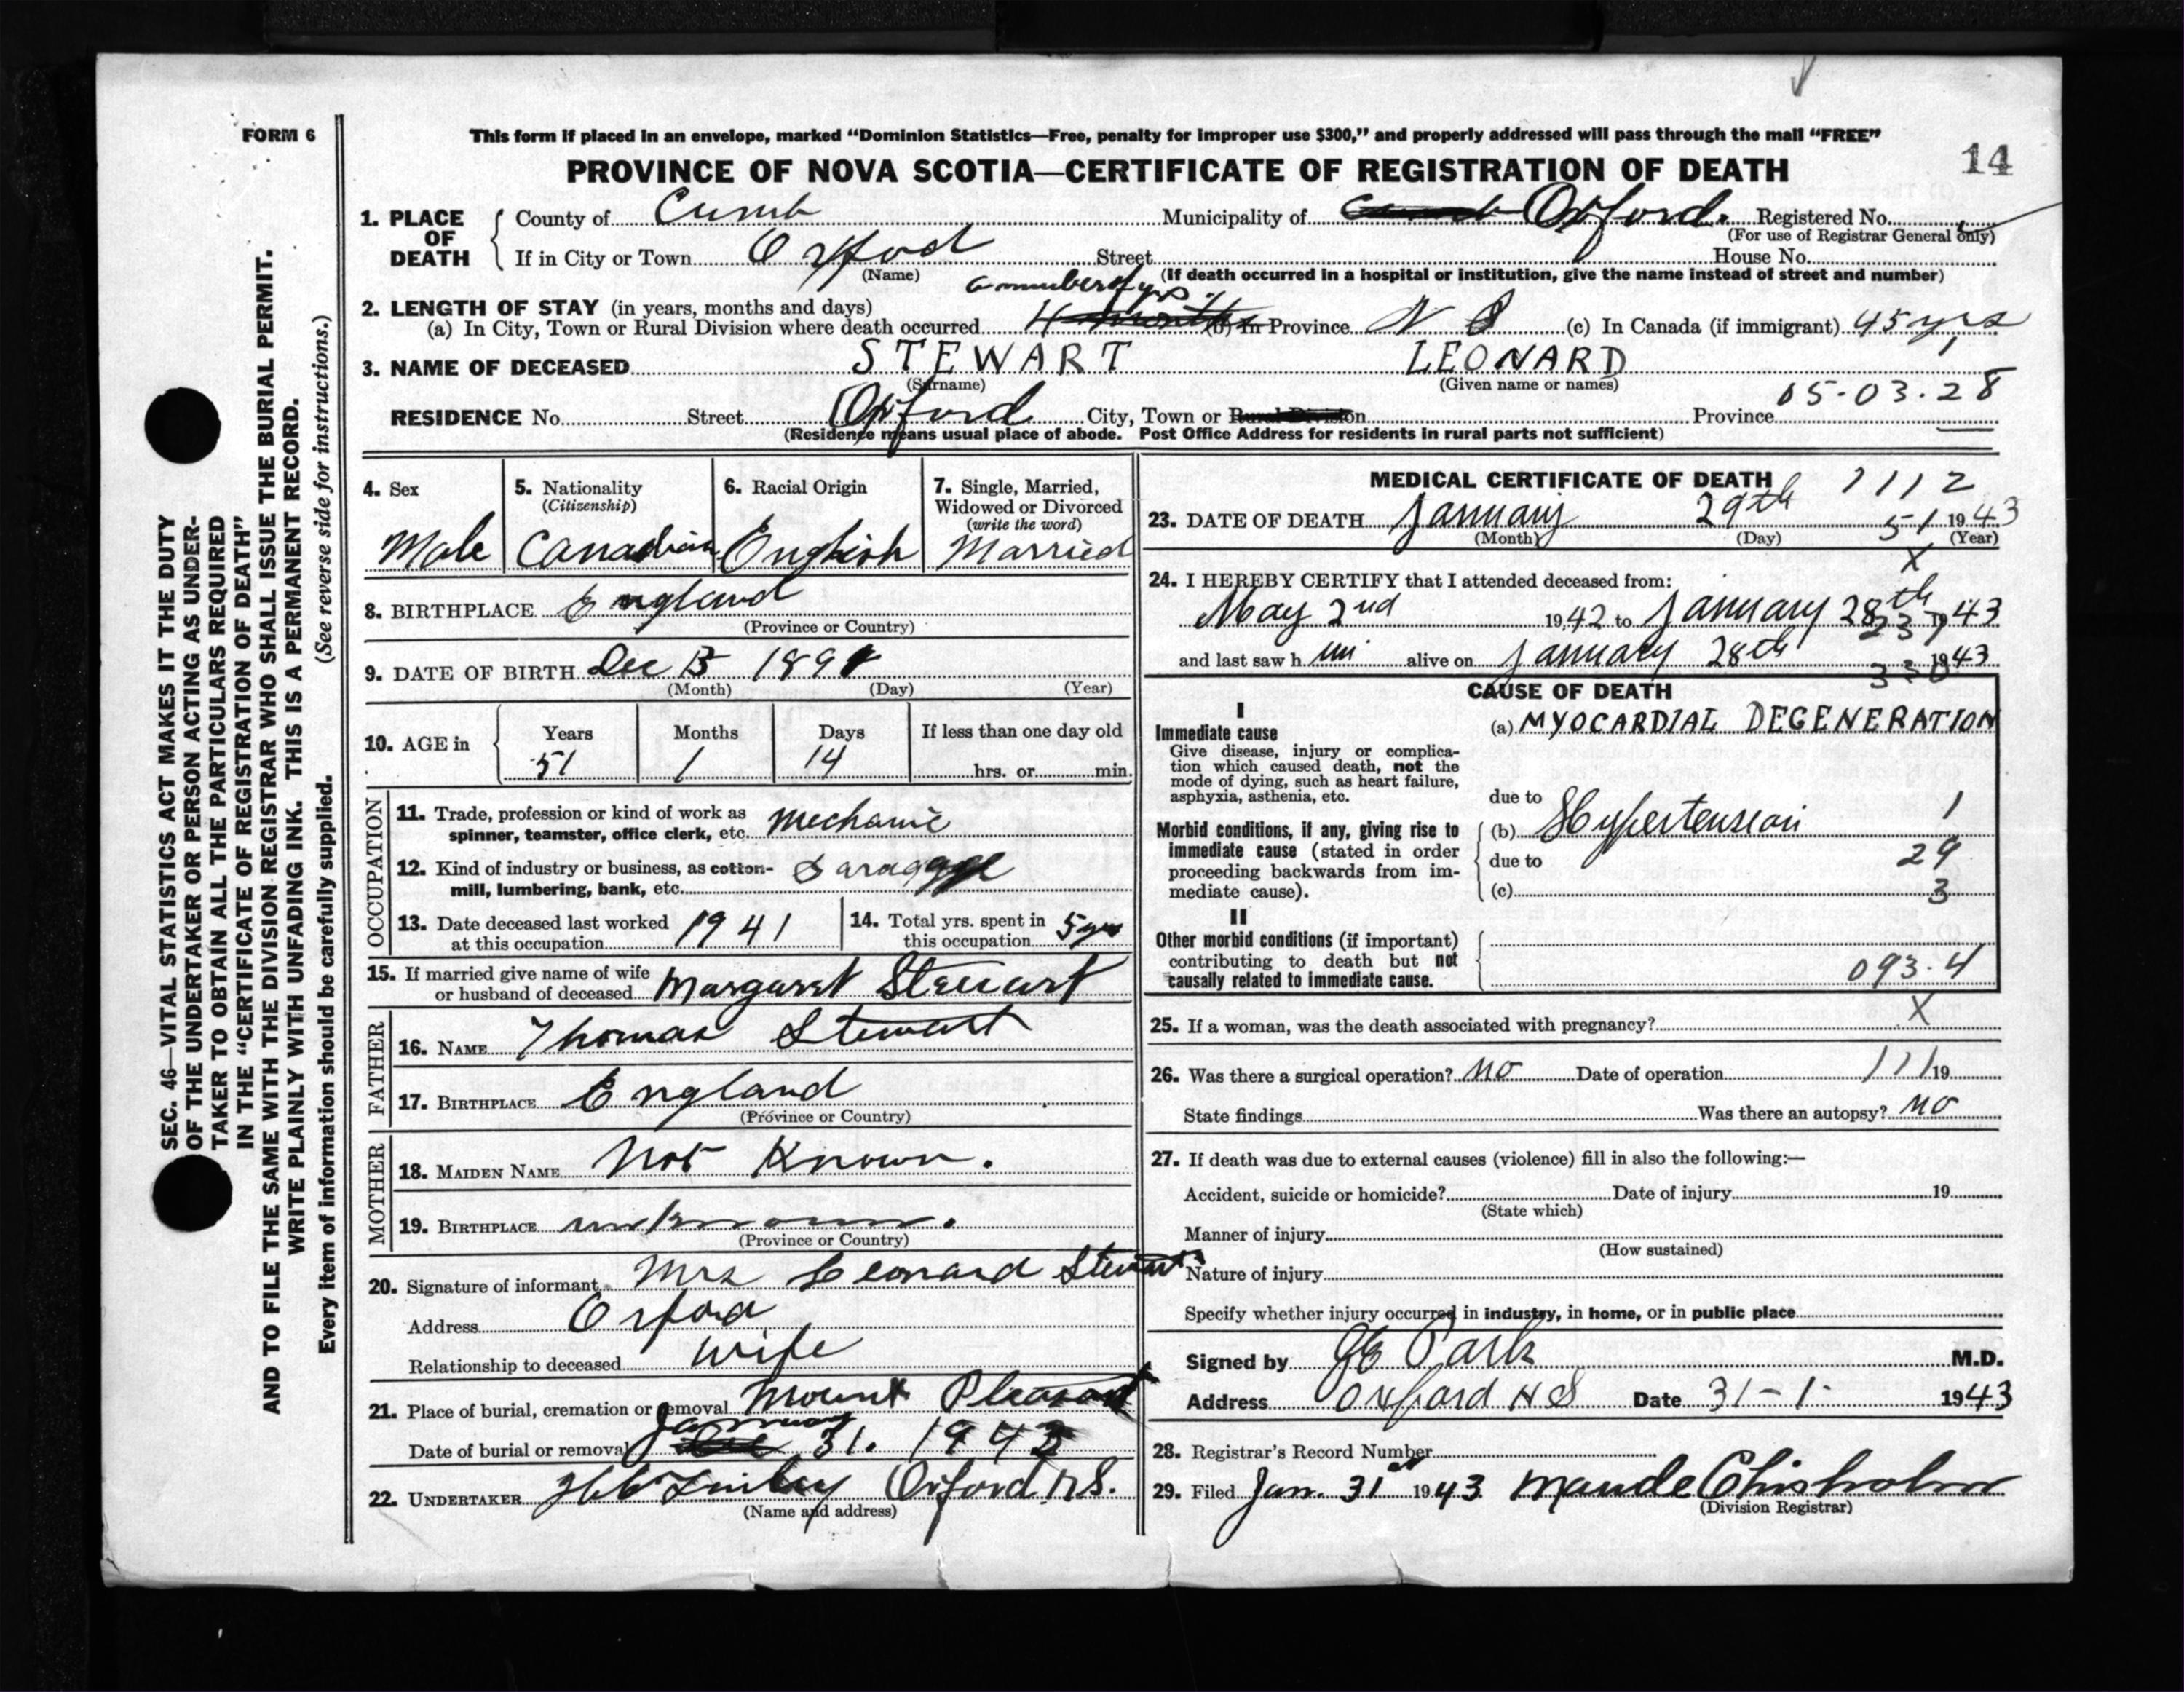 FORM 6
This form if placed in an envelope, marked “Dominion Statistics—Free, penalty for improper use $300,” and properly addressed will pass through the mail “FREE”
PROVINCE OF NOVA SCOTIA—CERTIFICATE OF REGISTRATION OF DEATH
14
1. PLACE OF DEATH
County of Cumb Municipality of Oxford. Registered No.
(For use of Registrar General only)
If in City or Town Oxford Street House No.
(Name) (If death occurred in a hospital or institution, give the name instead of street and number)
a number of yrs
2. LENGTH OF STAY (in years, months and days)
(a) In City, Town or Rural Division where death occurred 4 months (b) In Province N S (c) In Canada (if immigrant) 45 yrs
3. NAME OF DECEASED STEWART LEONARD
(Surname) (Given name or names)
05-03.28
RESIDENCE No. Street Oxford City, Town or Rural Division Province
(Residence means usual place of abode. Post Office Address for residents in rural parts not sufficient)
4. Sex
Male
5. Nationality
(Citizenship)
Canadian
6. Racial Origin
English
7. Single, Married,
Widowed or Divorced
(write the word)
Married
8. BIRTHPLACE England
(Province or Country)
9. DATE OF BIRTH Dec 15 1891
(Month) (Day) (Year)
10. AGE in
Years Months Days If less than one day old
51 1 14 hrs. or min.
OCCUPATION
11. Trade, profession or kind of work as
spinner, teamster, office clerk, etc. Mechanic
12. Kind of industry or business, as cotton-
mill, lumbering, bank, etc.
13. Date deceased last worked
at this occupation 1941
14. Total yrs. spent in
this occupation 5 yrs
15. If married give name of wife
or husband of deceased Margaret Stewart
FATHER
16. NAME Thomas Stewart
17. BIRTHPLACE England
(Province or Country)
MOTHER
18. MAIDEN NAME Not Known.
19. BIRTHPLACE unknown.
(Province or Country)
20. Signature of informant Mrs Leonard Stewart
Address Oxford
Relationship to deceased wife
21. Place of burial, cremation or removal Mount Pleasant
Date of burial or removal January 31. 1943
22. UNDERTAKER Oxford N.S.
(Name and address)
MEDICAL CERTIFICATE OF DEATH
1112
23. DATE OF DEATH January 29th 51 1943
(Month) (Day) (Year)
X
24. I HEREBY CERTIFY that I attended deceased from:
May 2nd 1942 to January 28th 1943
and last saw him alive on January 28th 1943
CAUSE OF DEATH
I
Immediate cause
Give disease, injury or complica-
tion which caused death, not the
mode of dying, such as heart failure,
asphyxia, asthenia, etc.
(a) MYOCARDIAL DEGENERATION
due to
Morbid conditions, if any, giving rise to
immediate cause (stated in order
proceeding backwards from im-
mediate cause).
(b) Hypertension 1
due to 29
(c) 3
II
Other morbid conditions (if important)
contributing to death but not
causally related to immediate cause.
093.4
X
25. If a woman, was the death associated with pregnancy?
26. Was there a surgical operation? No Date of operation 111 19
State findings Was there an autopsy? No
27. If death was due to external causes (violence) fill in also the following:—
Accident, suicide or homicide? Date of injury 19
(State which)
Manner of injury
(How sustained)
Nature of injury
Specify whether injury occurred in industry, in home, or in public place
Signed by JE Park M.D.
Address Oxford N S Date 31-1- 1943
28. Registrar's Record Number
29. Filed Jan. 31st 1943 Maude Chisholm
(Division Registrar)
SEC. 46—VITAL STATISTICS ACT MAKES IT THE DUTY
OF THE UNDERTAKER OR PERSON ACTING AS UNDER-
TAKER TO OBTAIN ALL THE PARTICULARS REQUIRED
IN THE “CERTIFICATE OF REGISTRATION OF DEATH”
AND TO FILE THE SAME WITH THE DIVISION REGISTRAR WHO SHALL ISSUE THE BURIAL PERMIT.
WRITE PLAINLY WITH UNFADING INK. THIS IS A PERMANENT RECORD.
Every item of information should be carefully supplied. (See reverse side for instructions.)